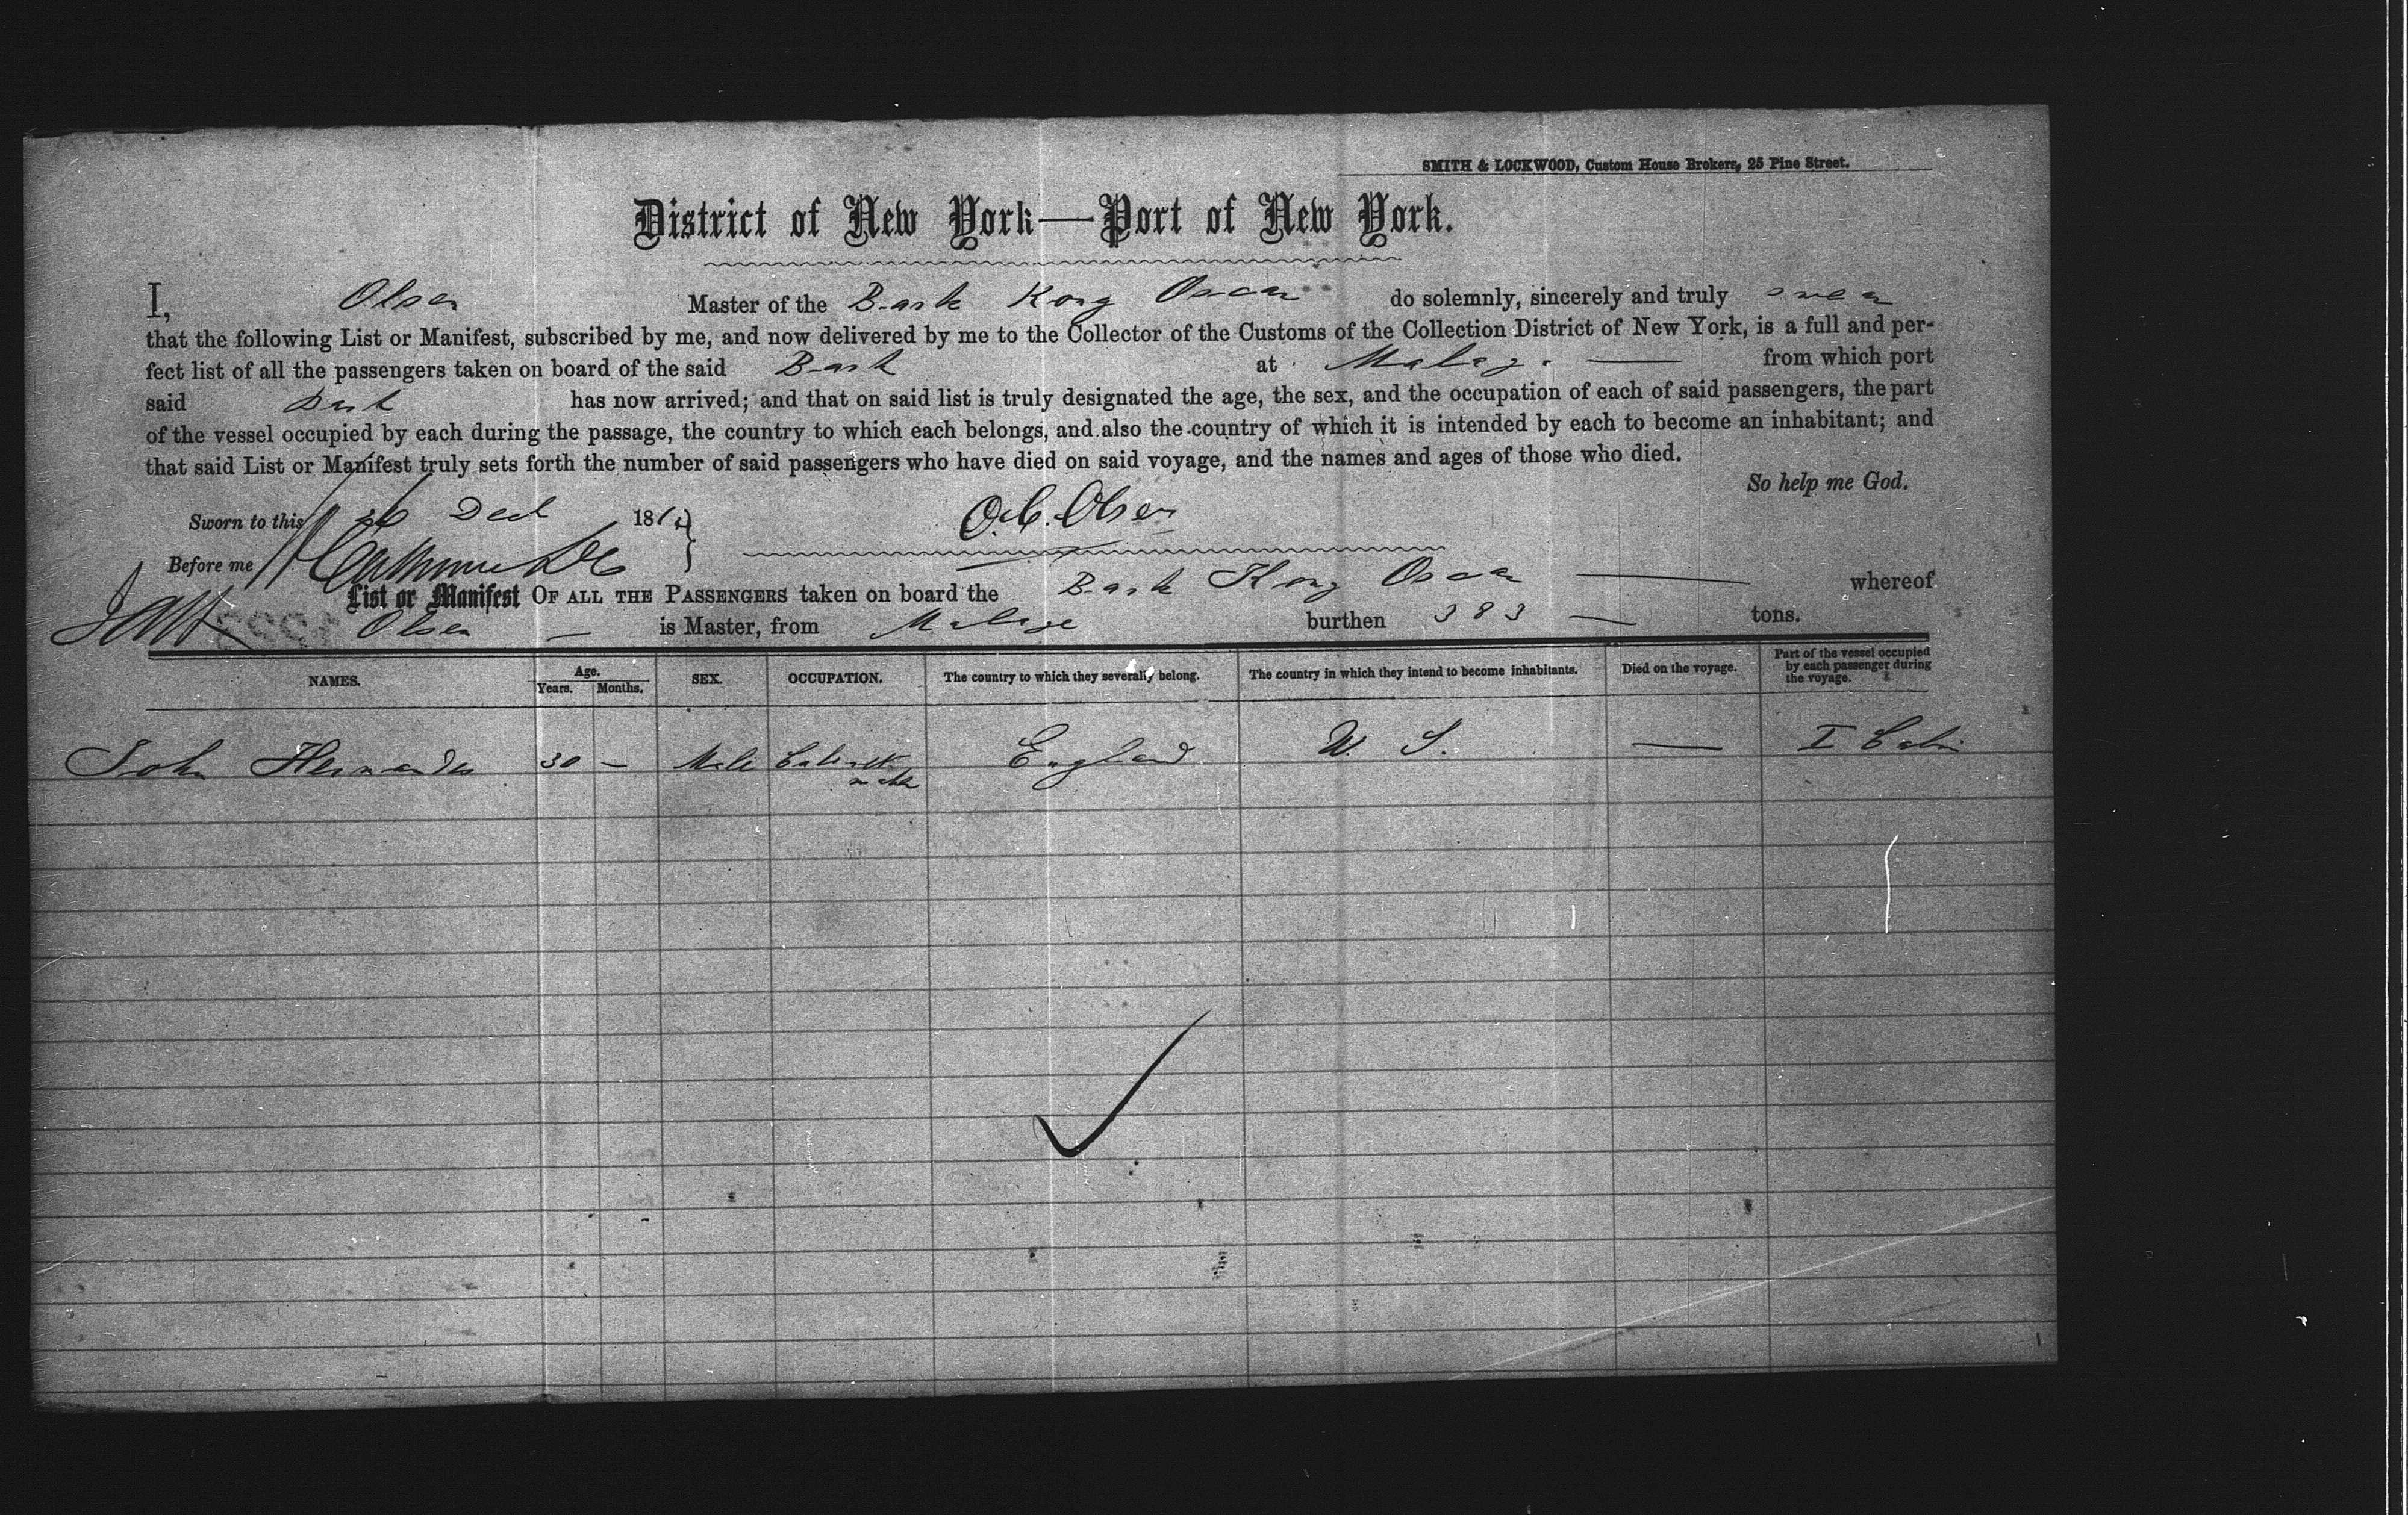 SMITH & LOCKWOOD, Custom House Brokers, 25 Pine Street.
District of New York—Port of New York.
I, Olsen Master of the Bark Kong Oscar do solemnly, sincerely and truly swear
that the following List or Manifest, subscribed by me, and now delivered by me to the Collector of the Customs of the Collection District of New York, is a full and per-
fect list of all the passengers taken on board of the said Bark at Malaga — from which port
said Bark has now arrived; and that on said list is truly designated the age, the sex, and the occupation of each of said passengers, the part
of the vessel occupied by each during the passage, the country to which each belongs, and also the country of which it is intended by each to become an inhabitant; and
that said List or Manifest truly sets forth the number of said passengers who have died on said voyage, and the names and ages of those who died.
So help me God.
Sworn to this 26 Dec 186
O.C. Olsen
Before me
List or Manifest OF ALL THE PASSENGERS taken on board the Bark Kong Oscar — whereof
Olsen — is Master, from Malaga burthen 383 — tons.
NAMES. Age. Years. Months. SEX. OCCUPATION. The country to which they severally belong. The country in which they intend to become inhabitants. Died on the voyage. Part of the vessel occupied by each passenger during the voyage.
John Hernandes 30 — Male Cabinet maker England U. S. — I Cabin